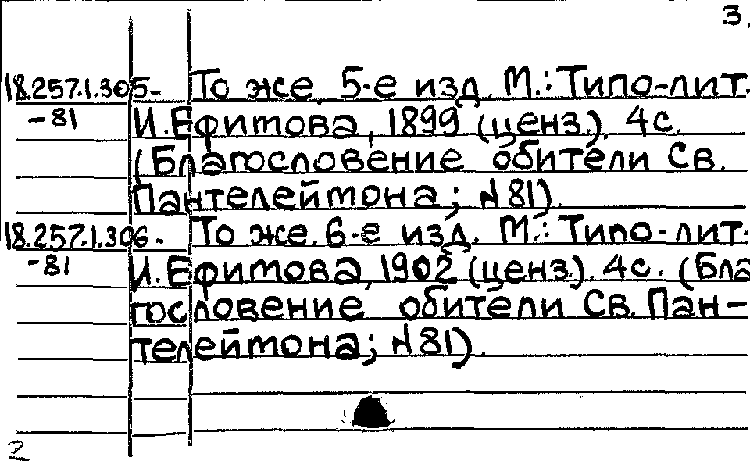 3.
18.257.1.305- То же. 5-е изд. М.: Типо-лит.
-81 И. Ефимова, 1899 (ценз.). 4с.
(Благословение обители Св.
Пантелеймона; №81).
18.257.1.306. То же. 6-е изд. М.: Типо-лит.
-81 И. Ефимова, 1902 (ценз.). 4с. (Бла
гословение обители Св. Пан-
телеймона; №81).
2